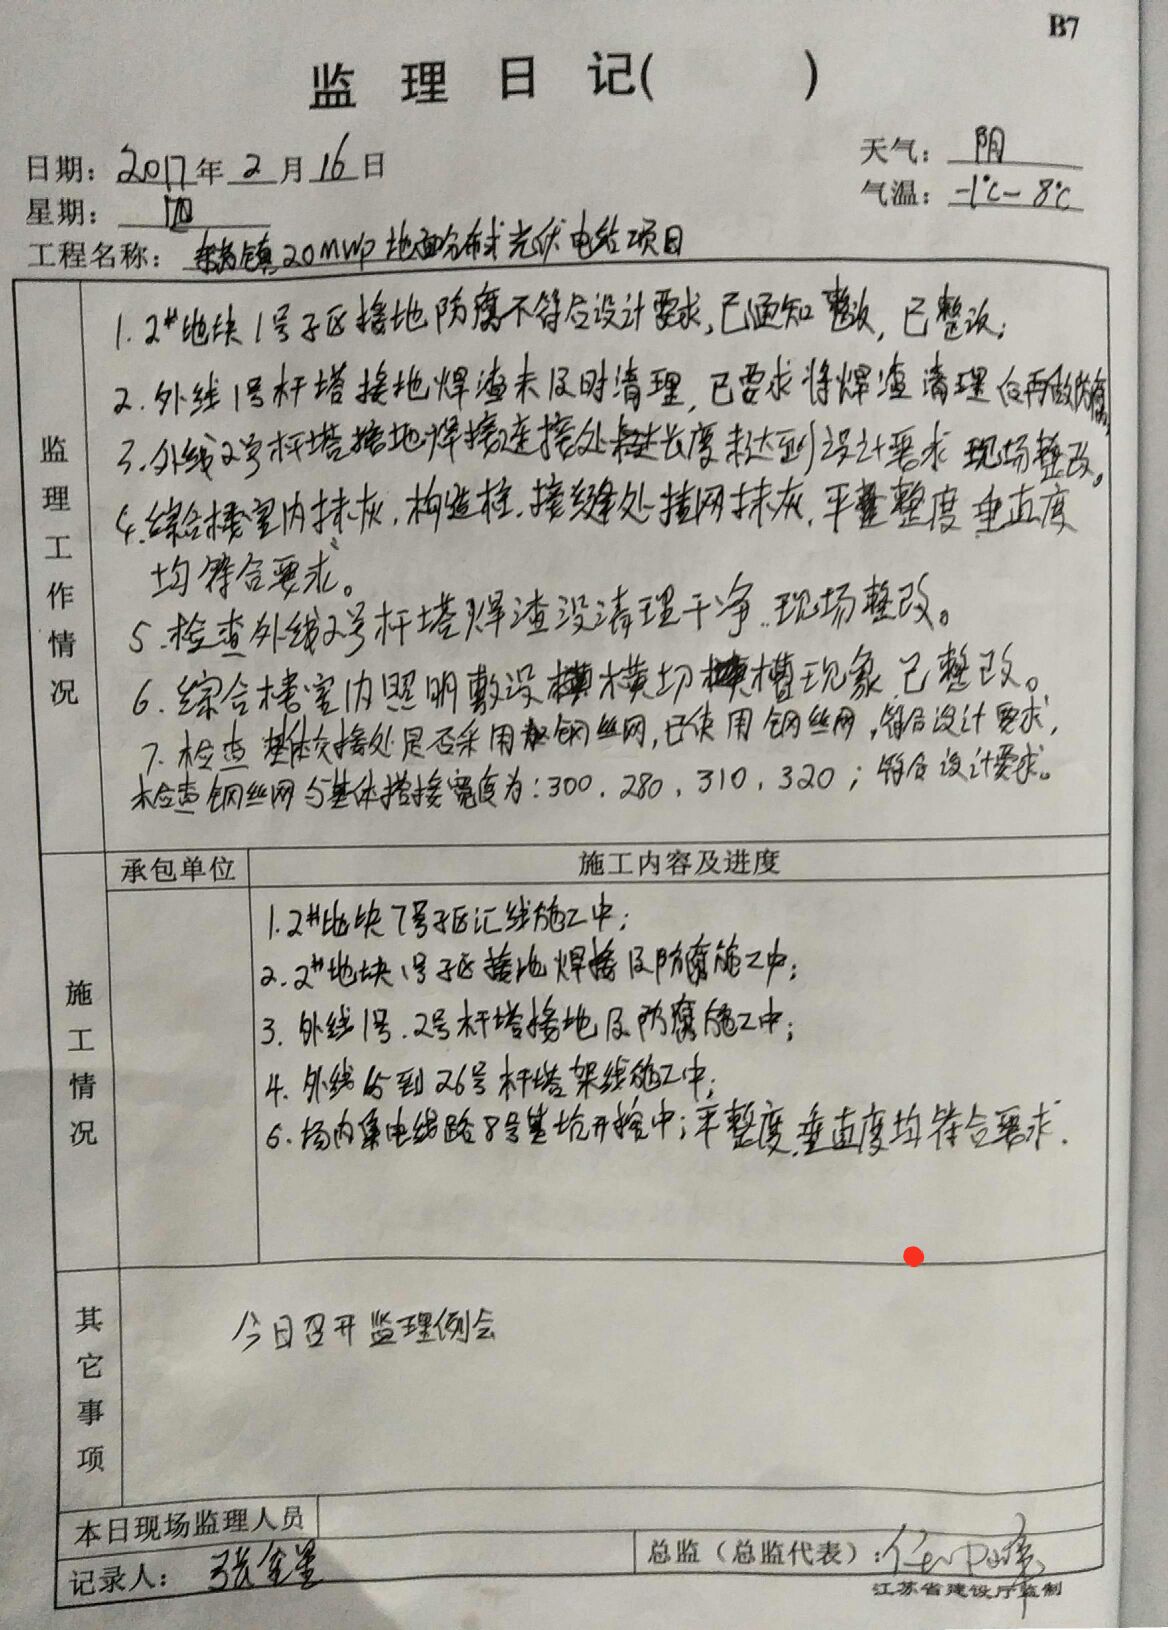 B7
监理日记(　　)
日期：2017年2月16日
天气：阴
星期：四
气温：-1℃-8℃
工程名称：镇20MWp地面分布式光伏电站项目
监理工作情况
1.2#地块1号子区接地防腐不符合设计要求,已通知整改,已整改;
2.外线1号杆塔接地焊渣未及时清理,已要求将焊渣清理后再做防腐,
3.外线2号杆塔接地焊接连接处长度未达到设计要求 现场整改。
4.综合楼室内抹灰,构造柱,接缝处挂网抹灰,平整度垂直度
均符合要求。
5.检查外线2号杆塔焊渣没清理干净.现场整改。
6.综合楼室内照明敷设横切槽现象已整改。
7.检查基体交接处是否采用钢丝网,已使用钢丝网,符合设计要求,
检查钢丝网与基体搭接宽度为:300、280、310、320;符合设计要求。
施工情况
承包单位
施工内容及进度
1.2#地块7号子区汇线施工中;
2.2#地块1号子区接地焊接及防腐施工中;
3.外线1号.2号杆塔接地及防腐施工中;
4.外线15到26号杆塔架线施工中;
5.场内集电线路8号基坑开挖中;平整度,垂直度均符合要求.
其它事项
今日召开监理例会
本日现场监理人员
记录人：张金星
总监（总监代表）：
江苏省建设厅监制